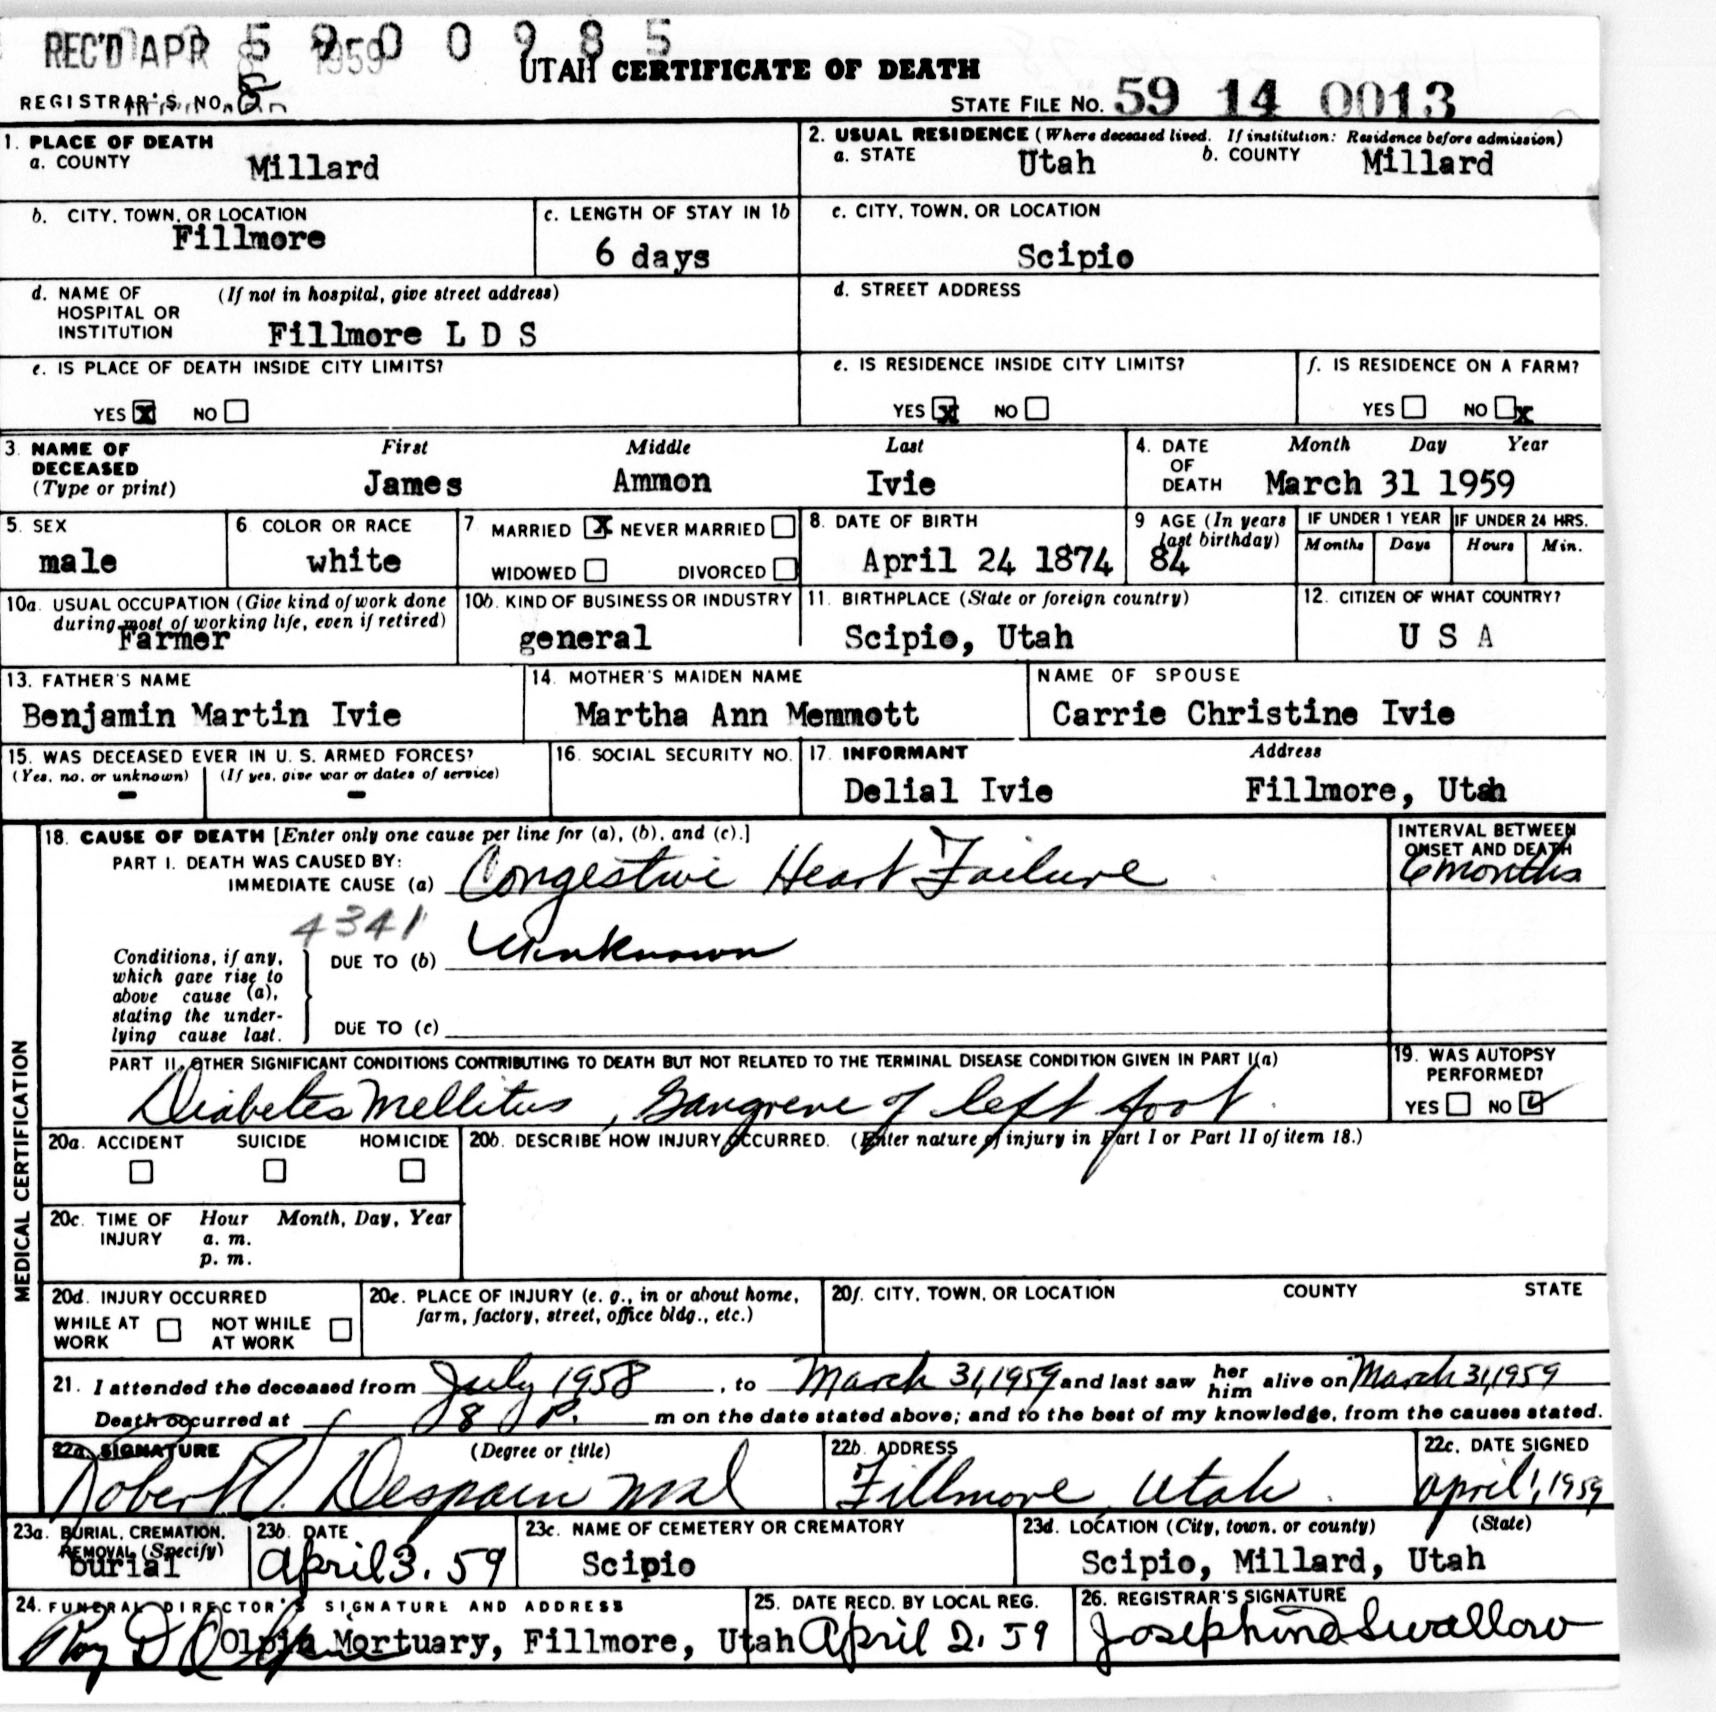 REC'D APR 8 1959
5900985
UTAH CERTIFICATE OF DEATH
REGISTRAR'S NO. 8
STATE FILE NO. 59 14 0013
1. PLACE OF DEATH
a. COUNTY Millard
2. USUAL RESIDENCE (Where deceased lived. If institution: Residence before admission)
a. STATE Utah b. COUNTY Millard
b. CITY, TOWN, OR LOCATION
Fillmore
c. LENGTH OF STAY IN 1b
6 days
c. CITY, TOWN, OR LOCATION
Scipio
d. NAME OF HOSPITAL OR INSTITUTION (If not in hospital, give street address)
Fillmore L D S
d. STREET ADDRESS
e. IS PLACE OF DEATH INSIDE CITY LIMITS?
YES x NO
e. IS RESIDENCE INSIDE CITY LIMITS?
YES x NO
f. IS RESIDENCE ON A FARM?
YES NO x
3. NAME OF DECEASED (Type or print)
First Middle Last
James Ammon Ivie
4. DATE OF DEATH Month Day Year
March 31 1959
5. SEX
male
6 COLOR OR RACE
white
7 MARRIED X NEVER MARRIED
WIDOWED DIVORCED
8. DATE OF BIRTH
April 24 1874
9 AGE (In years last birthday)
84
IF UNDER 1 YEAR IF UNDER 24 HRS.
Months Days Hours Min.
10a. USUAL OCCUPATION (Give kind of work done during most of working life, even if retired)
Farmer
10b. KIND OF BUSINESS OR INDUSTRY
general
11. BIRTHPLACE (State or foreign country)
Scipio, Utah
12. CITIZEN OF WHAT COUNTRY?
U S A
13. FATHER'S NAME
Benjamin Martin Ivie
14. MOTHER'S MAIDEN NAME
Martha Ann Memmott
NAME OF SPOUSE
Carrie Christine Ivie
15. WAS DECEASED EVER IN U. S. ARMED FORCES?
(Yes, no, or unknown) (If yes, give war or dates of service)
- -
16. SOCIAL SECURITY NO.
17. INFORMANT Address
Delial Ivie Fillmore, Utah
MEDICAL CERTIFICATION
18. CAUSE OF DEATH [Enter only one cause per line for (a), (b), and (c).]
PART I. DEATH WAS CAUSED BY:
IMMEDIATE CAUSE (a) Congestive Heart Failure
INTERVAL BETWEEN ONSET AND DEATH
6 months
4341
Conditions, if any, which gave rise to above cause (a), stating the underlying cause last.
DUE TO (b) Unknown
DUE TO (c)
PART II. OTHER SIGNIFICANT CONDITIONS CONTRIBUTING TO DEATH BUT NOT RELATED TO THE TERMINAL DISEASE CONDITION GIVEN IN PART I(a)
Diabetes Mellitus, Gangrene of left foot.
19. WAS AUTOPSY PERFORMED?
YES NO ✓
20a. ACCIDENT SUICIDE HOMICIDE
20b. DESCRIBE HOW INJURY OCCURRED. (Enter nature of injury in Part I or Part II of item 18.)
20c. TIME OF INJURY Hour Month, Day, Year
a. m.
p. m.
20d. INJURY OCCURRED
WHILE AT WORK NOT WHILE AT WORK
20e. PLACE OF INJURY (e. g., in or about home, farm, factory, street, office bldg., etc.)
20f. CITY, TOWN, OR LOCATION COUNTY STATE
21. I attended the deceased from July 1958, to March 31, 1959 and last saw her him alive on March 31, 1959
Death occurred at 8 P. m on the date stated above; and to the best of my knowledge, from the causes stated.
22a. SIGNATURE (Degree or title)
Robert D. Despain MD
22b. ADDRESS
Fillmore, Utah.
22c. DATE SIGNED
April 1, 1959
23a. BURIAL, CREMATION, REMOVAL (Specify)
burial
23b. DATE
April 3. 59
23c. NAME OF CEMETERY OR CREMATORY
Scipio
23d. LOCATION (City, town, or county) (State)
Scipio, Millard, Utah
24. FUNERAL DIRECTOR'S SIGNATURE AND ADDRESS
Roy D Olpin
Olpin Mortuary, Fillmore, Utah
25. DATE RECD. BY LOCAL REG.
April 2. 59
26. REGISTRAR'S SIGNATURE
Josephine Swallow